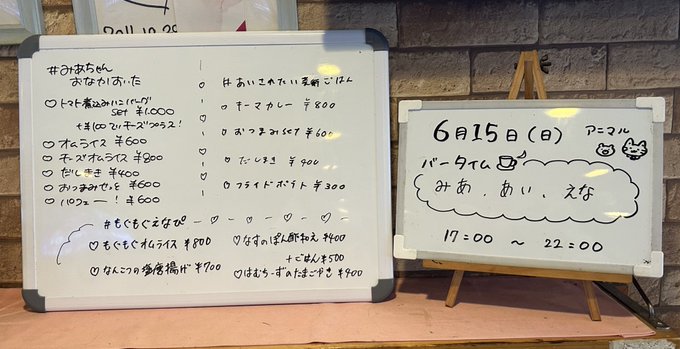 2011.10.29
#みあちゃん
おなかおいた
♡トマト煮込みハンバーグ
set ¥1.000
+¥100でチーズプラス!
♡オムライス ¥600
♡チーズオムライス ¥800
♡だしまき ¥400
♡おつまみせっと ¥600
♡パフェー! ¥600
#あいされたい ごはん
♡キーマカレー ¥800
♡おつまみset ¥600
♡だしまき ¥400
♡フライドポテト ¥300
#もぐもぐえなぴ
♡もぐもぐオムライス ¥800
♡なんこつの塩唐揚げ ¥700
♡なすのぽん酢和え ¥400
+ごはん ¥500
♡はむちーずのたまごやき ¥400
6月15日(日)
アニマル
バータイム
みあ、あい、えな
17:00 ～ 22:00